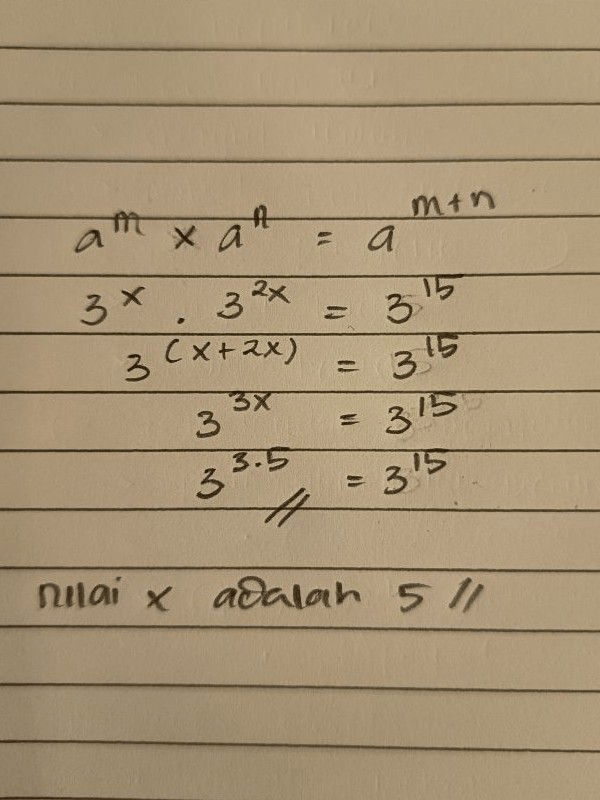 aᵐ × aⁿ = aᵐ⁺ⁿ
3ˣ . 3²ˣ = 3¹⁵
3⁽ˣ⁺²ˣ⁾ = 3¹⁵
3³ˣ = 3¹⁵
3³·⁵ = 3¹⁵ //
nilai x adalah 5 //